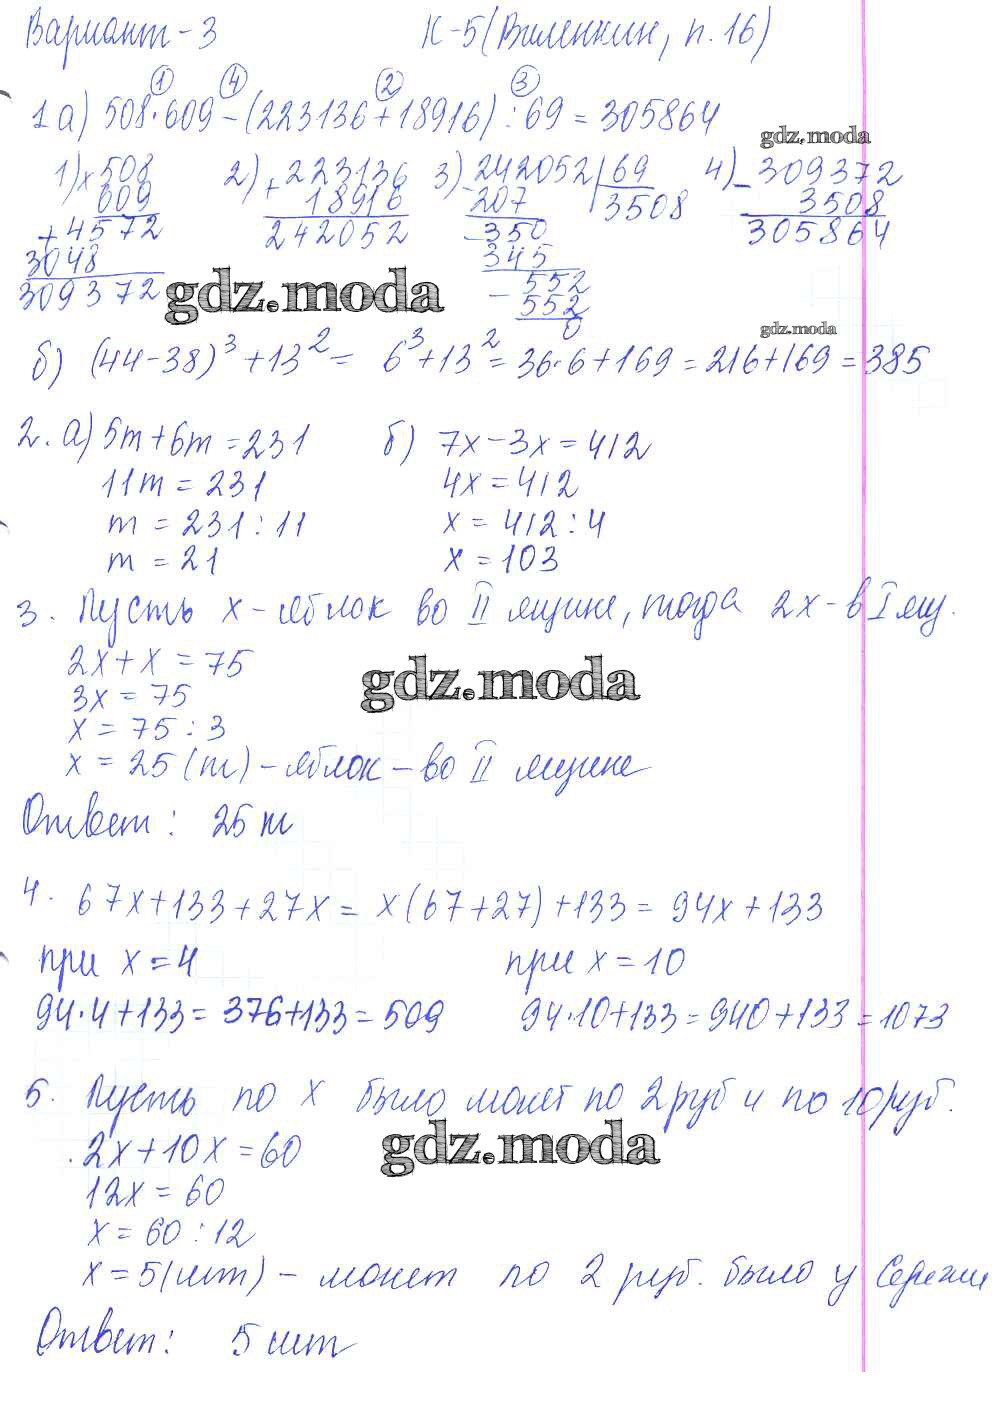 Вариант-3 К-5 (Виленкин, п.16)
① ④ ② ③
1 а) 508·609-(223136+18916):69=305864
gdz.moda
1) ×508 2) +223136 3) -242052|69 4) -309372
609 18916 207 3508 3508
+4572 242052 -350 305864
3048 345
309372 -552
gdz.moda
552
0
gdz.moda
б) (44-38)³+13²= 6³+13²=36·6+169=216+169=385
2. а) 5m+6m=231 б) 7x-3x=412
11m=231 4x=412
m=231:11 x=412:4
m=21 x=103
3. Пусть x-яблок во II ящике, тогда 2x-в I ящ.
2x+x=75
gdz.moda
3x=75
x=75:3
x=25(т)-яблок-во II ящике
Ответ: 25 т
4. 67x+133+27x=x(67+27)+133=94x+133
при x=4 при x=10
94·4+133=376+133=509 94·10+133=940+133=1073
5. Пусть по x было монет по 2 руб и по 10 руб.
2x+10x=60
gdz.moda
12x=60
x=60:12
x=5(шт)-монет по 2 руб. было у Сережи
Ответ: 5 шт